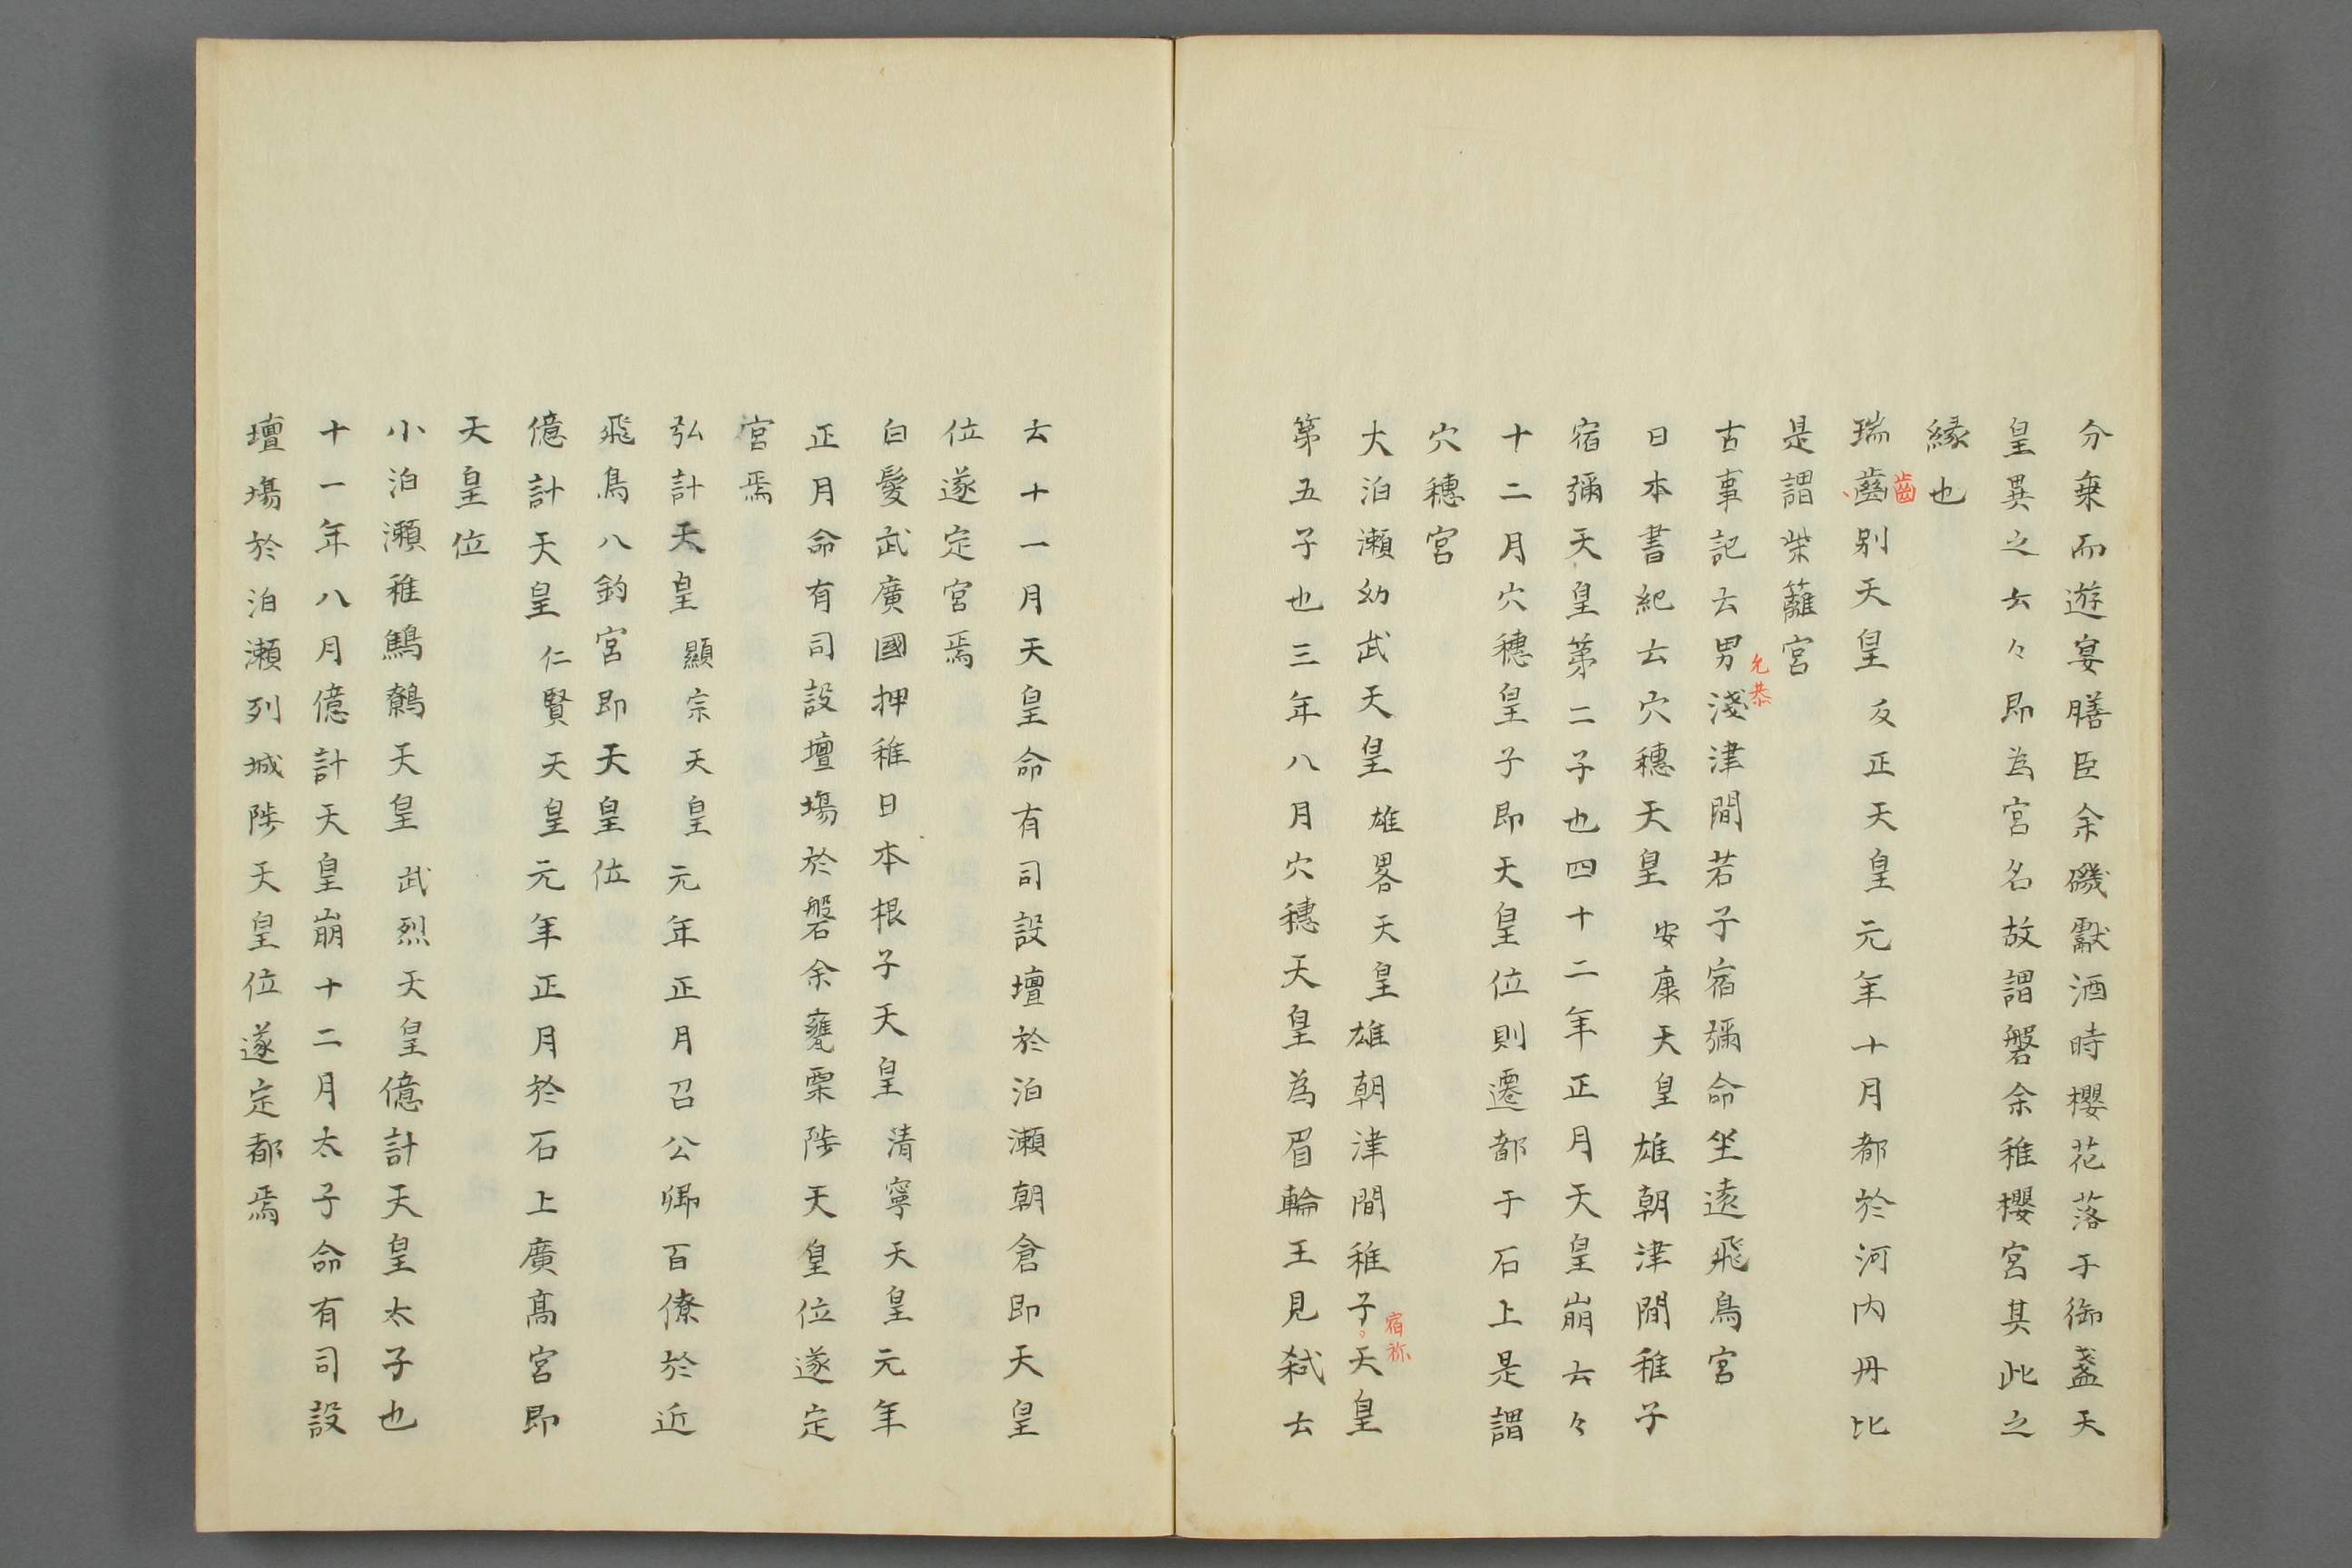 分乗而遊宴膳臣余磯獻酒時櫻花落于御盞天
皇異之云々即為宮名故謂磐余稚櫻宮其此之
縁也
瑞齒别天皇反正天皇元年十月都於河内丹比
齒
是謂柴籬宮
古事記云男淺津間若子宿彌命坐遠飛鳥宮
允恭
日本書紀云穴穗天皇安康天皇雄朝津間稚子
宿彌天皇第二子也四十二年正月天皇崩云々
十二月穴穗皇子即天皇位則遷都于石上是謂
穴穗宮
大泊瀬幼武天皇雄畧天皇雄朝津間稚子天皇
宿祢
第五子也三年八月穴穗天皇為眉輪王見弑云
云十一月天皇命有司設壇於泊瀬朝倉即天皇
位遂定宮焉
白髮武廣國押稚日本根子天皇清寧天皇元年
正月命有司設壇場於磐余甕栗陟天皇位遂定
宮焉
弘計天皇顯宗天皇元年正月召公卿百僚於近
飛鳥八釣宮即天皇位
億計天皇仁賢天皇元年正月於石上廣髙宮即
天皇位
小泊瀬稚鷦鷯天皇武烈天皇億計天皇太子也
十一年八月億計天皇崩十二月太子命有司設
壇場於泊瀬列城陟天皇位遂定都焉